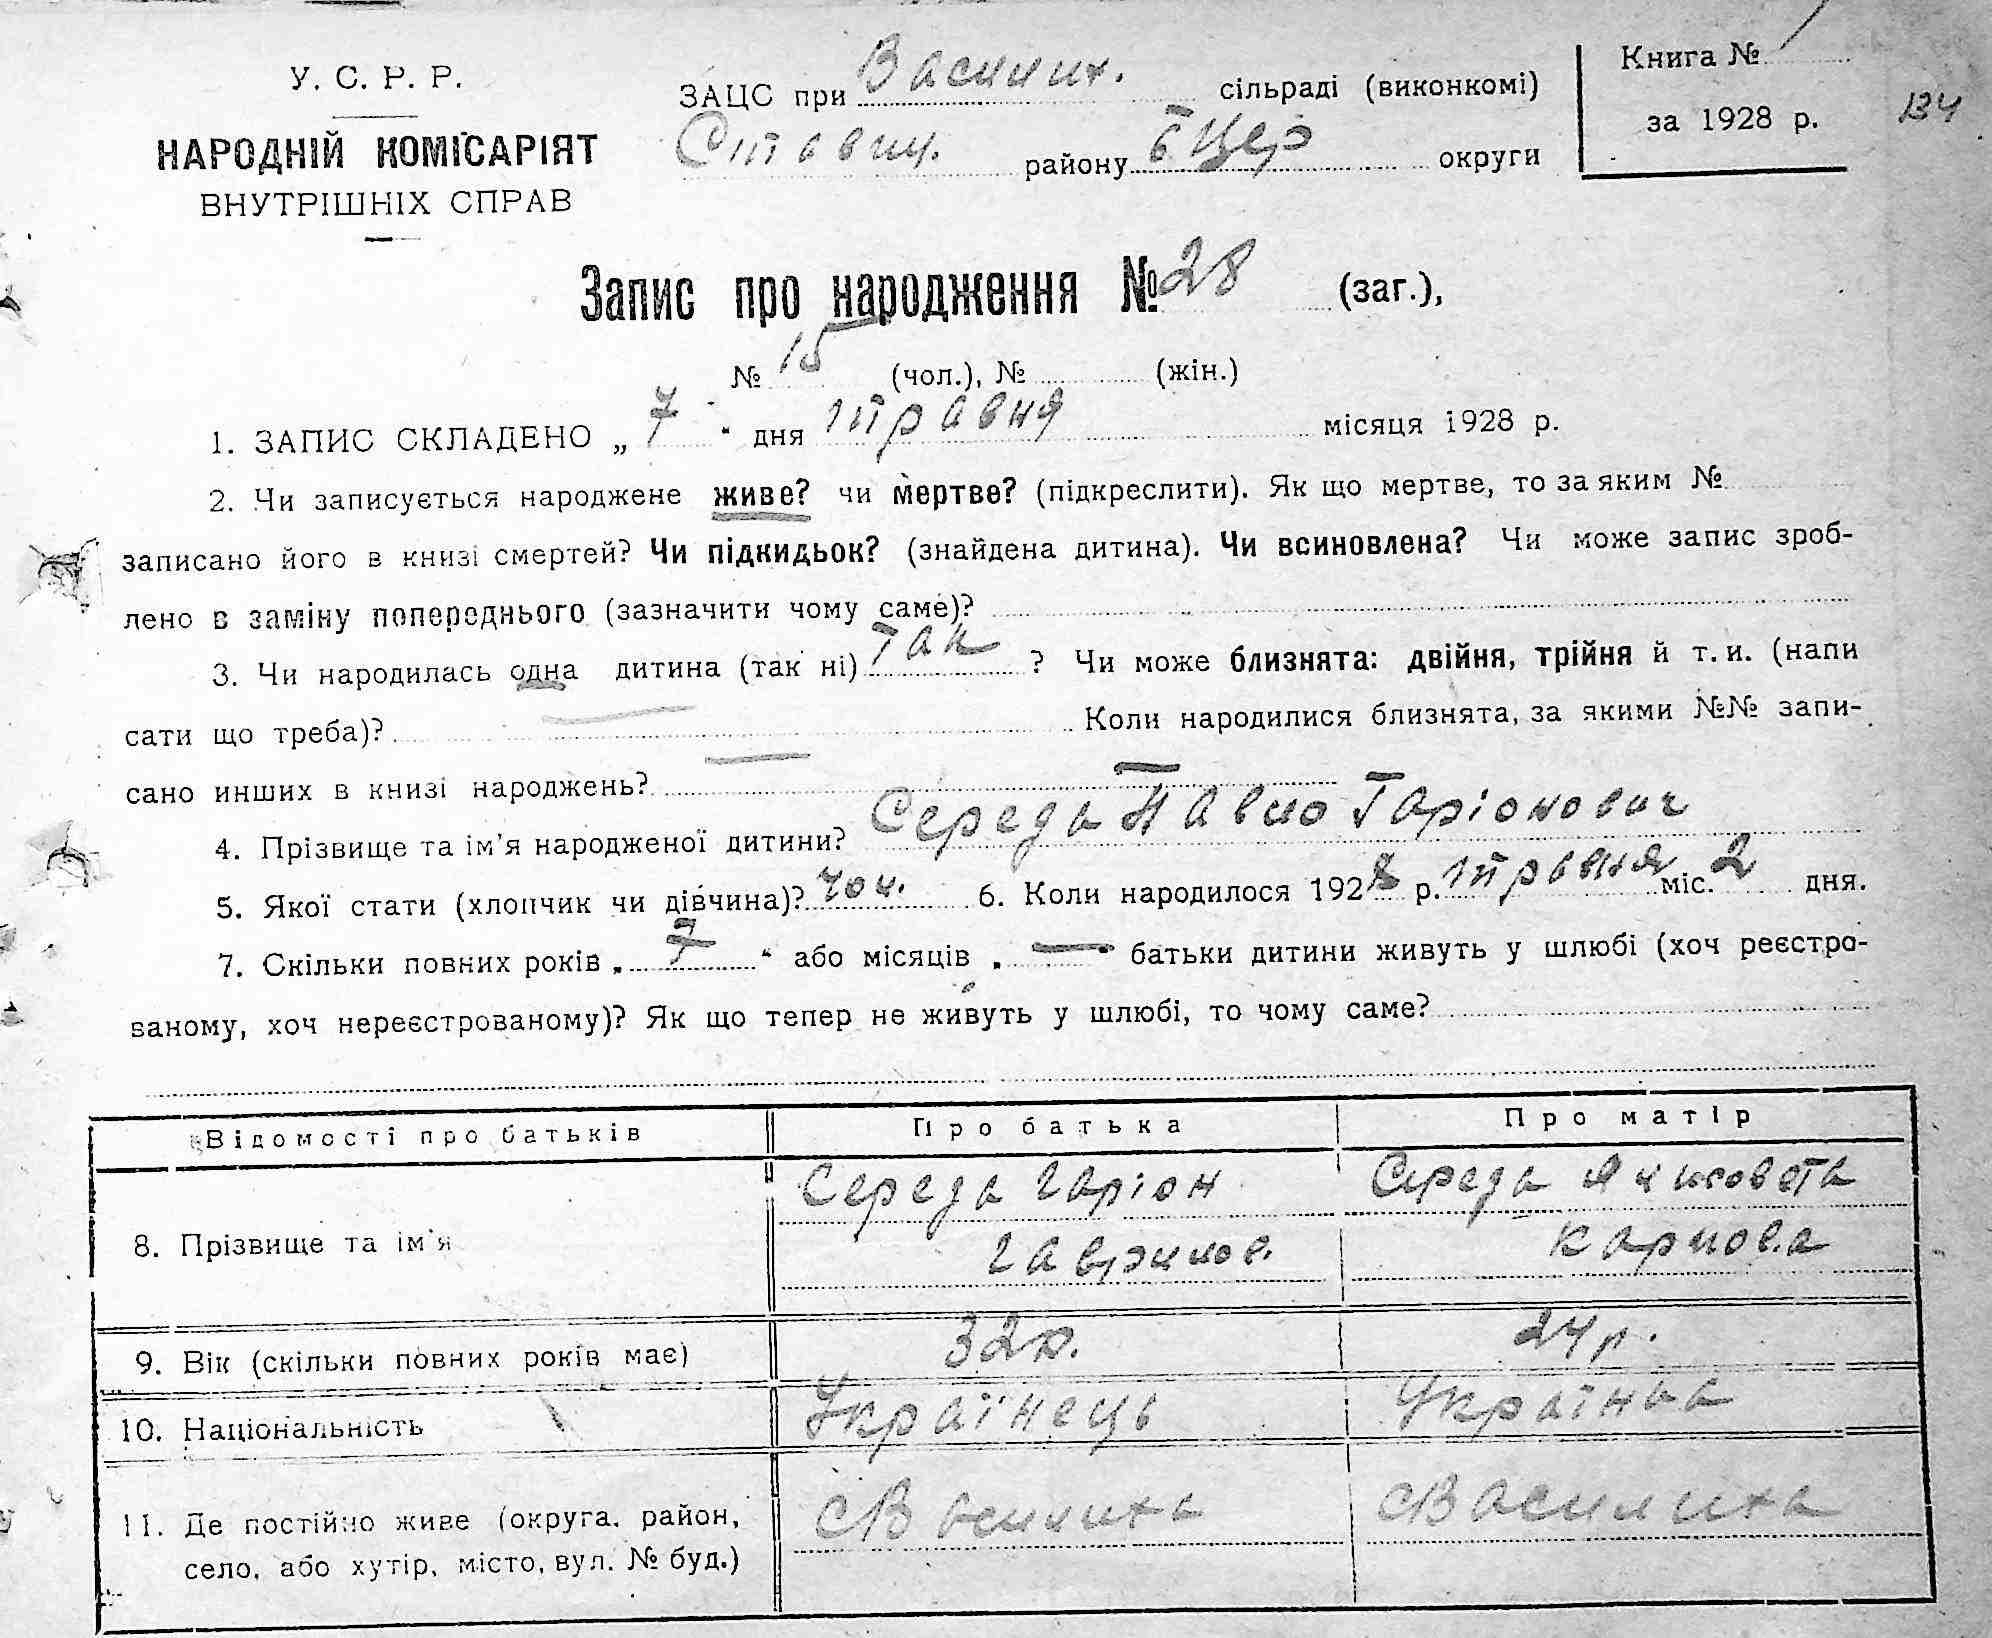 У. С. Р. Р.
НАРОДНІЙ КОМІСАРІЯТ
ВНУТРІШНІХ СПРАВ
ЗАЦС при Василих. сільраді (виконкомі)
Ставищ. району Б Цер округи
Книга № 1
за 1928 р.
134
Запис про народження № 28 (заг.),
№ 15 (чол.), № (жін.)
1. ЗАПИС СКЛАДЕНО „ 7 “ дня травня місяця 1928 р.
2. Чи записується народжене живе? чи мертве? (підкреслити). Як що мертве, то за яким №
записано його в книзі смертей? Чи підкидьок? (знайдена дитина). Чи всиновлена? Чи може запис зроб-
лено в заміну попереднього (зазначити чому саме)?
3. Чи народилась одна дитина (так ні) так ? Чи може близнята: двійня, трійня й т. и. (напи
сати що треба)? — Коли народилися близнята, за якими №№ запи-
сано инших в книзі народжень? —
4. Прізвище та ім'я народженої дитини? Середа Павло Гаріонович
5. Якої стати (хлопчик чи дівчина)? чол. 6. Коли народилося 1928 р. травня міс. 2 дня.
7. Скільки повних років „ 7 “ або місяців „ — “ батьки дитини живуть у шлюбі (хоч реєстро-
ваному, хоч нереєстрованому)? Як що тепер не живуть у шлюбі, то чому саме?
Відомості про батьків Про батька Про матір
8. Прізвище та ім'я Середа Гаріон Гаврилов. Середа Ялисовета Карпова
9. Вік (скільки повних років має) 32 р. 24 р.
10. Національність Українець Українка
11. Де постійно живе (округа, район, село, або хутір, місто, вул. № буд.) с Василиха с Василиха